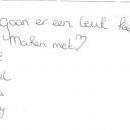 gaan er een leuk fee
Maken met ♡
el
a
y